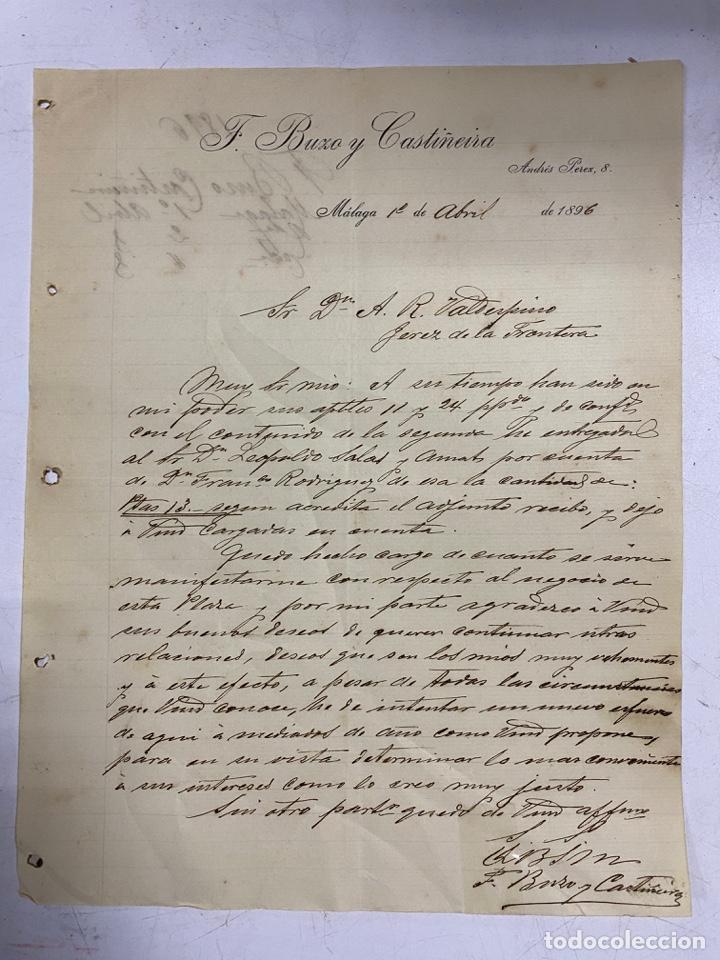 F. Buzo y Castiñeira
Andrés Perez, 8.
Málaga 1º de Abril de 1896
Sr Dn A. R. Valdespino
Jerez de la Frontera
Muy Sr mio: A su tiempo han sido en
mi poder sus 11 y 24 ppdo y de confd
con el contenido de la segunda he entregado
al Sr Dn Leopoldo Salas y Amat por cuenta
de Dn Franco Rodriguez de esa la cantidad de:
Ptas 13.- segun acredita el adjunto recibo, y dejo
à Vmd cargadas en cuenta.
Quedo hecho cargo de cuanto se sirve
manifestarme con respecto al negocio de
esta Plaza y por mi parte agradezco à Vmd
sus buenos deseos de querer continuar ntras
relaciones, deseos que son los mios muy vehementes
y à este efecto, a pesar de todas las circunstancias
que Vmd conoce, he de intentar un nuevo esfuerzo
de aqui à mediados de año como Vmd propone y
para en su vista determinar lo mas conveniente
à sus intereses como lo creo muy justo.
Sin otro partr quedo de Vmd affmo
S. S.
Q B S M
F. Buzo y Castiñeira
todocoleccion
todocoleccion.net